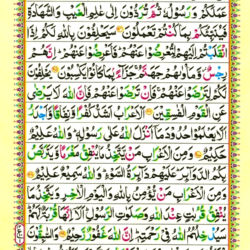 عَمَلَكُمْ وَرَسُوْلُهٗ ثُمَّ تُرَدُّوْنَ اِلٰى عٰلِمِ الْغَيْبِ وَالشَّهَادَةِ
فَيُنَبِّئُكُمْ بِمَا كُنْتُمْ تَعْمَلُوْنَ سَيَحْلِفُوْنَ بِاللّٰهِ لَكُمْ اِذَا
انْقَلَبْتُمْ اِلَيْهِمْ لِتُعْرِضُوْا عَنْهُمْ فَاَعْرِضُوْا عَنْهُمْ اِنَّهُمْ
رِجْسٌ وَّمَاْوٰىهُمْ جَهَنَّمُ جَزَآءًۢ بِمَا كَانُوْا يَكْسِبُوْنَ يَحْلِفُوْنَ
لَكُمْ لِتَرْضَوْا عَنْهُمْ فَاِنْ تَرْضَوْا عَنْهُمْ فَاِنَّ اللّٰهَ لَا يَرْضٰى
عَنِ الْقَوْمِ الْفٰسِقِيْنَ اَلْاَعْرَابُ اَشَدُّ كُفْرًا وَّنِفَاقًا وَّاَجْدَرُ
اَلَّا يَعْلَمُوْا حُدُوْدَ مَآ اَنْزَلَ اللّٰهُ عَلٰى رَسُوْلِهٖ وَاللّٰهُ عَلِيْمٌ
حَكِيْمٌ وَمِنَ الْاَعْرَابِ مَنْ يَّتَّخِذُ مَا يُنْفِقُ مَغْرَمًا وَّيَتَرَبَّصُ
بِكُمُ الدَّوَآئِرَ عَلَيْهِمْ دَآئِرَةُ السَّوْءِ وَاللّٰهُ سَمِيْعٌ عَلِيْمٌ
وَمِنَ الْاَعْرَابِ مَنْ يُّؤْمِنُ بِاللّٰهِ وَالْيَوْمِ الْاٰخِرِ وَيَتَّخِذُ مَا
يُنْفِقُ قُرُبٰتٍ عِنْدَ اللّٰهِ وَصَلَوٰتِ الرَّسُوْلِ اَلَآ اِنَّهَا قُرْبَةٌ لَّهُمْ
سَيُدْخِلُهُمُ اللّٰهُ فِيْ رَحْمَتِهٖ اِنَّ اللّٰهَ غَفُوْرٌ رَّحِيْمٌ وَالسّٰبِقُوْنَ